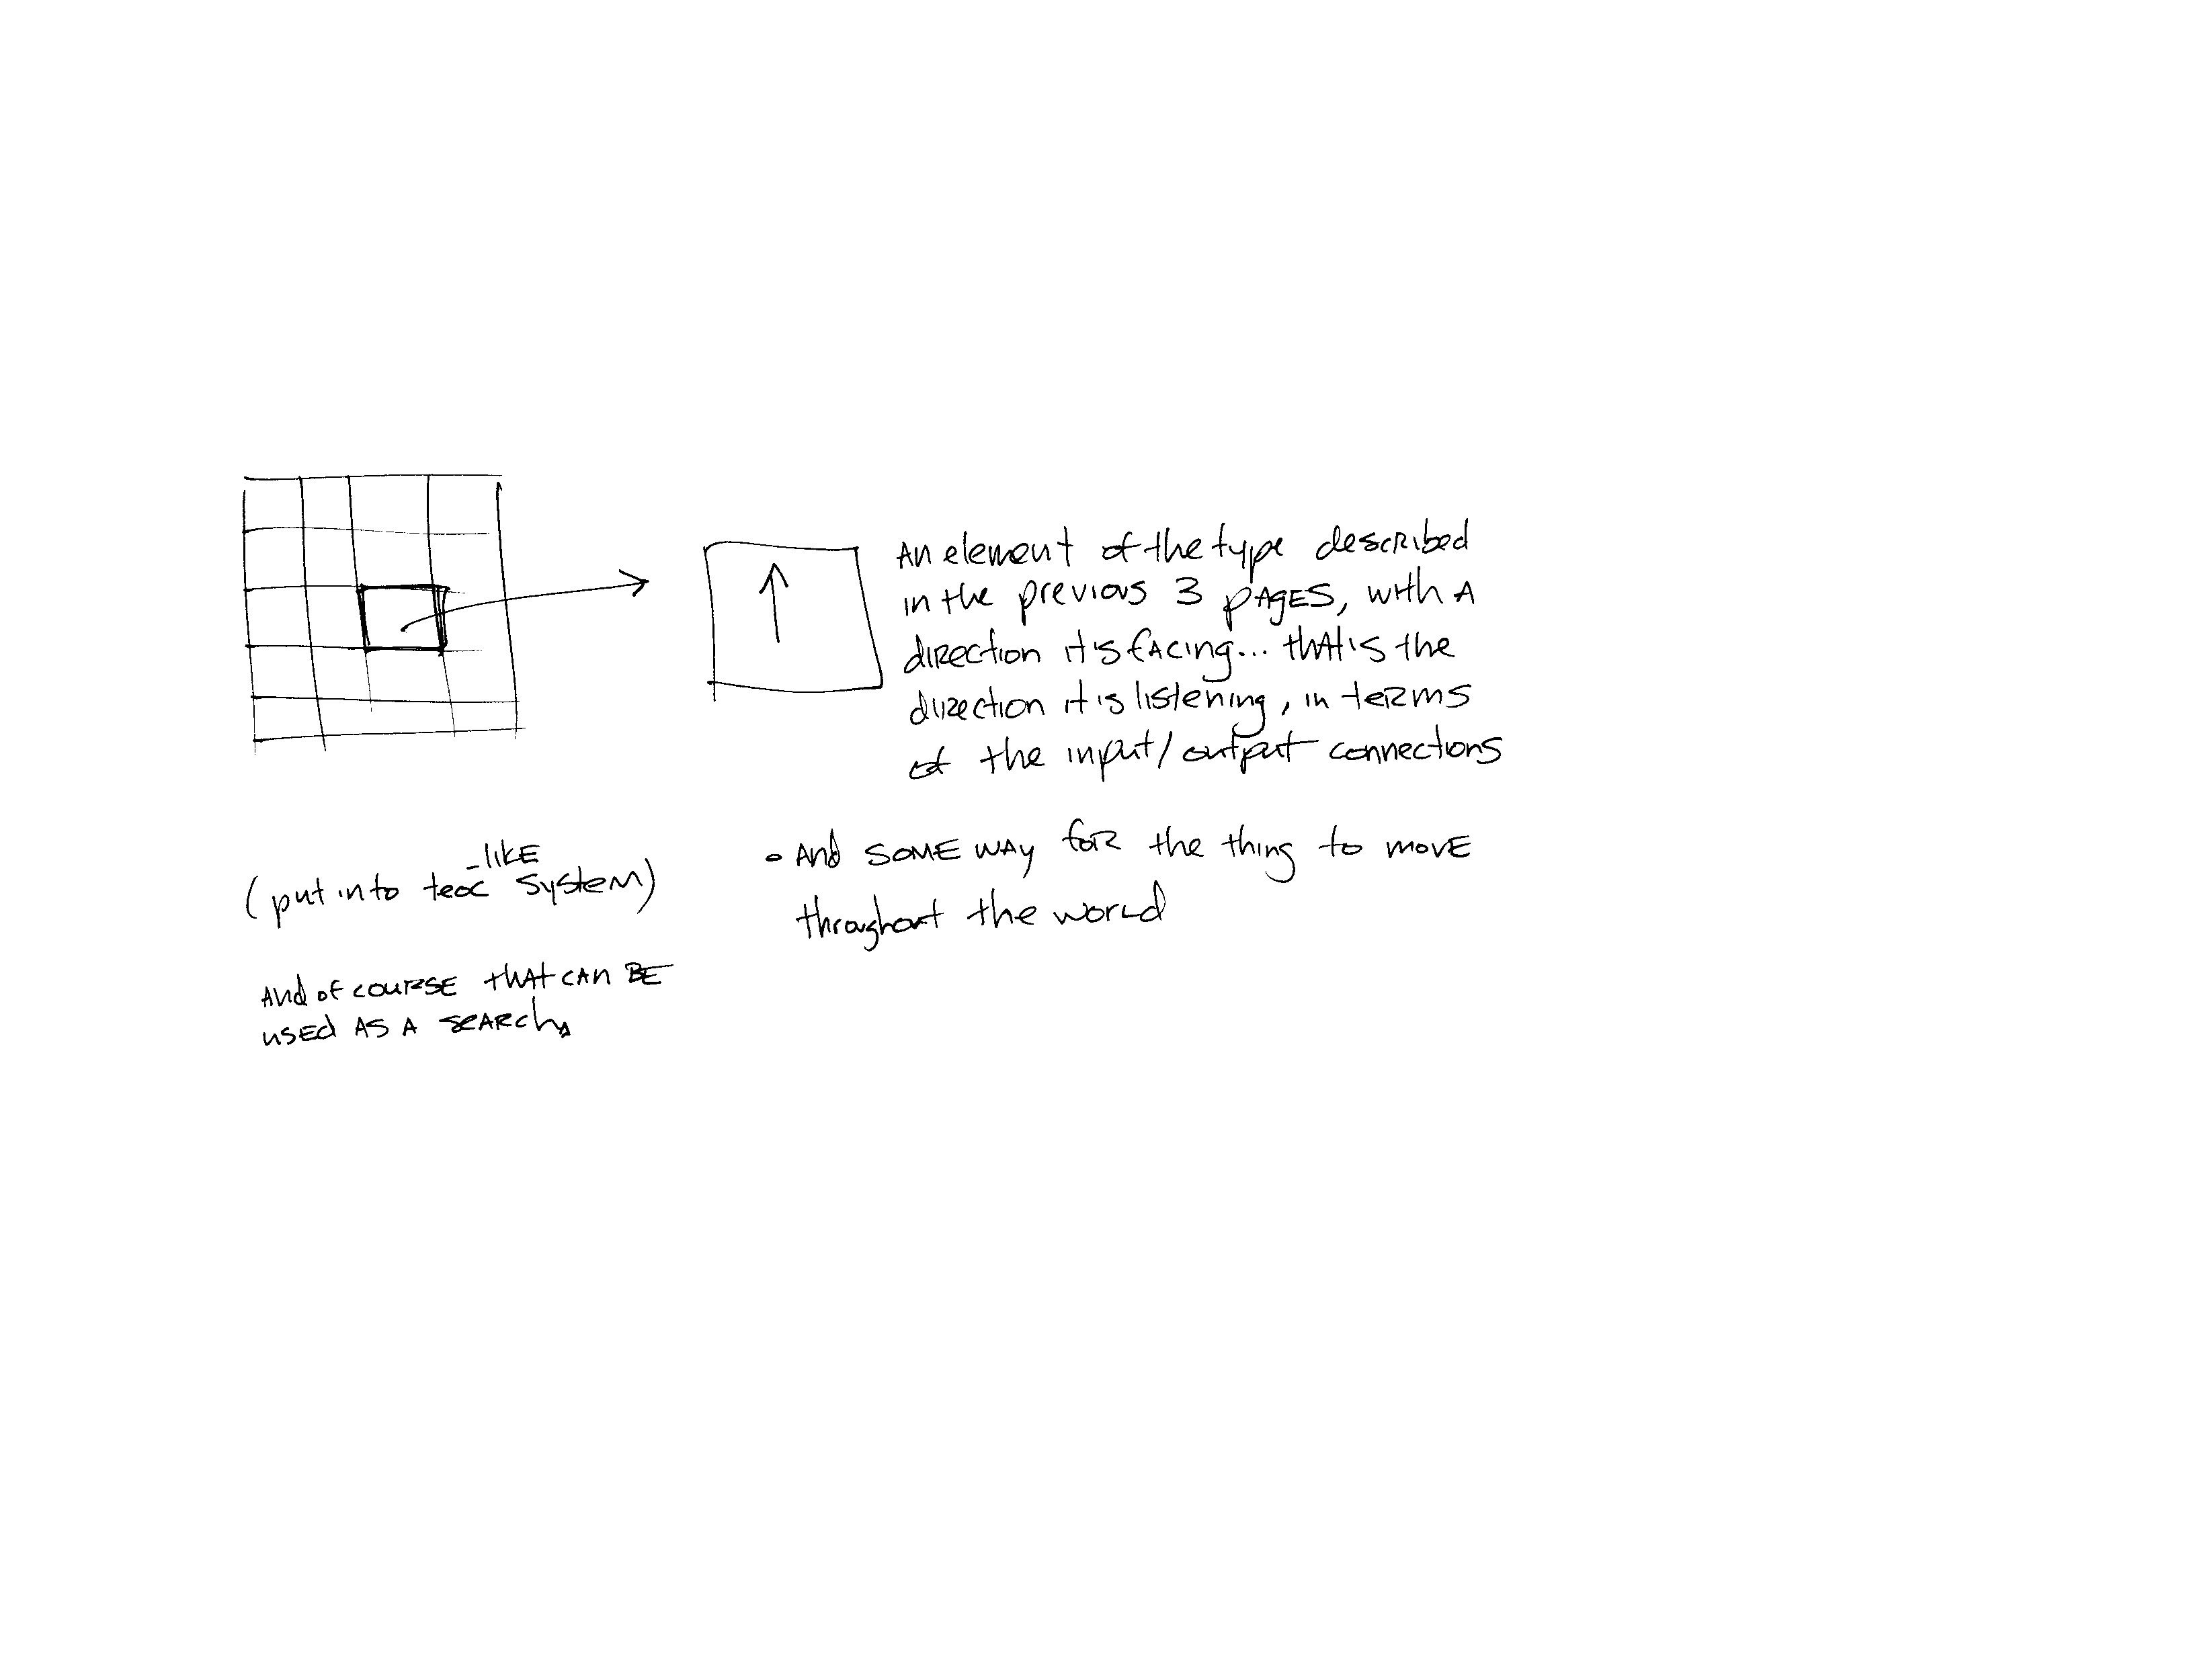 An element of the type described
in the previous 3 pAGES, with A
direction it's facing... that is the
direction it is listening, in terms
of the input/output connections
• And some way for the thing to move
throughout the world
-like
(put into teoc system)
And of course that can be
used as a search,